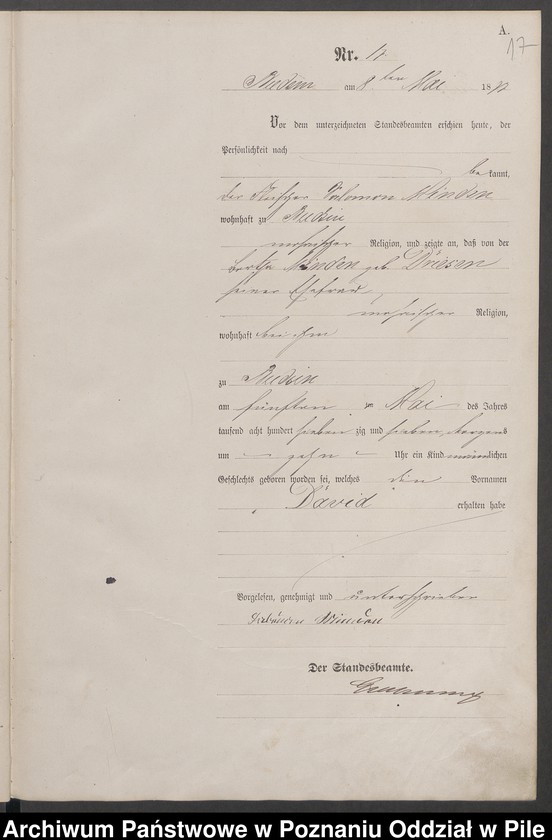 A.
17
Nr. 17
Budsin am 8ten Mai 1877
Vor dem unterzeichneten Standesbeamten erschien heute, der
Persönlichkeit nach
bekannt,
der Salomon Minden
wohnhaft zu Budsin
mosaischer Religion, und zeigte an, daß von der
Bertha Minden geb Driesen
seiner Ehefrau
mosaischer Religion,
wohnhaft bei ihm
zu Budsin
am fünften Mai des Jahres
tausend acht hundert siebenzig und sieben Morgens
um zehn Uhr ein Kind männlichen
Geschlechts geboren worden sei, welches den Vornamen
David erhalten habe
Vorgelesen, genehmigt und unterschrieben
Minden
Der Standesbeamte.
Archiwum Państwowe w Poznaniu Oddział w Pile